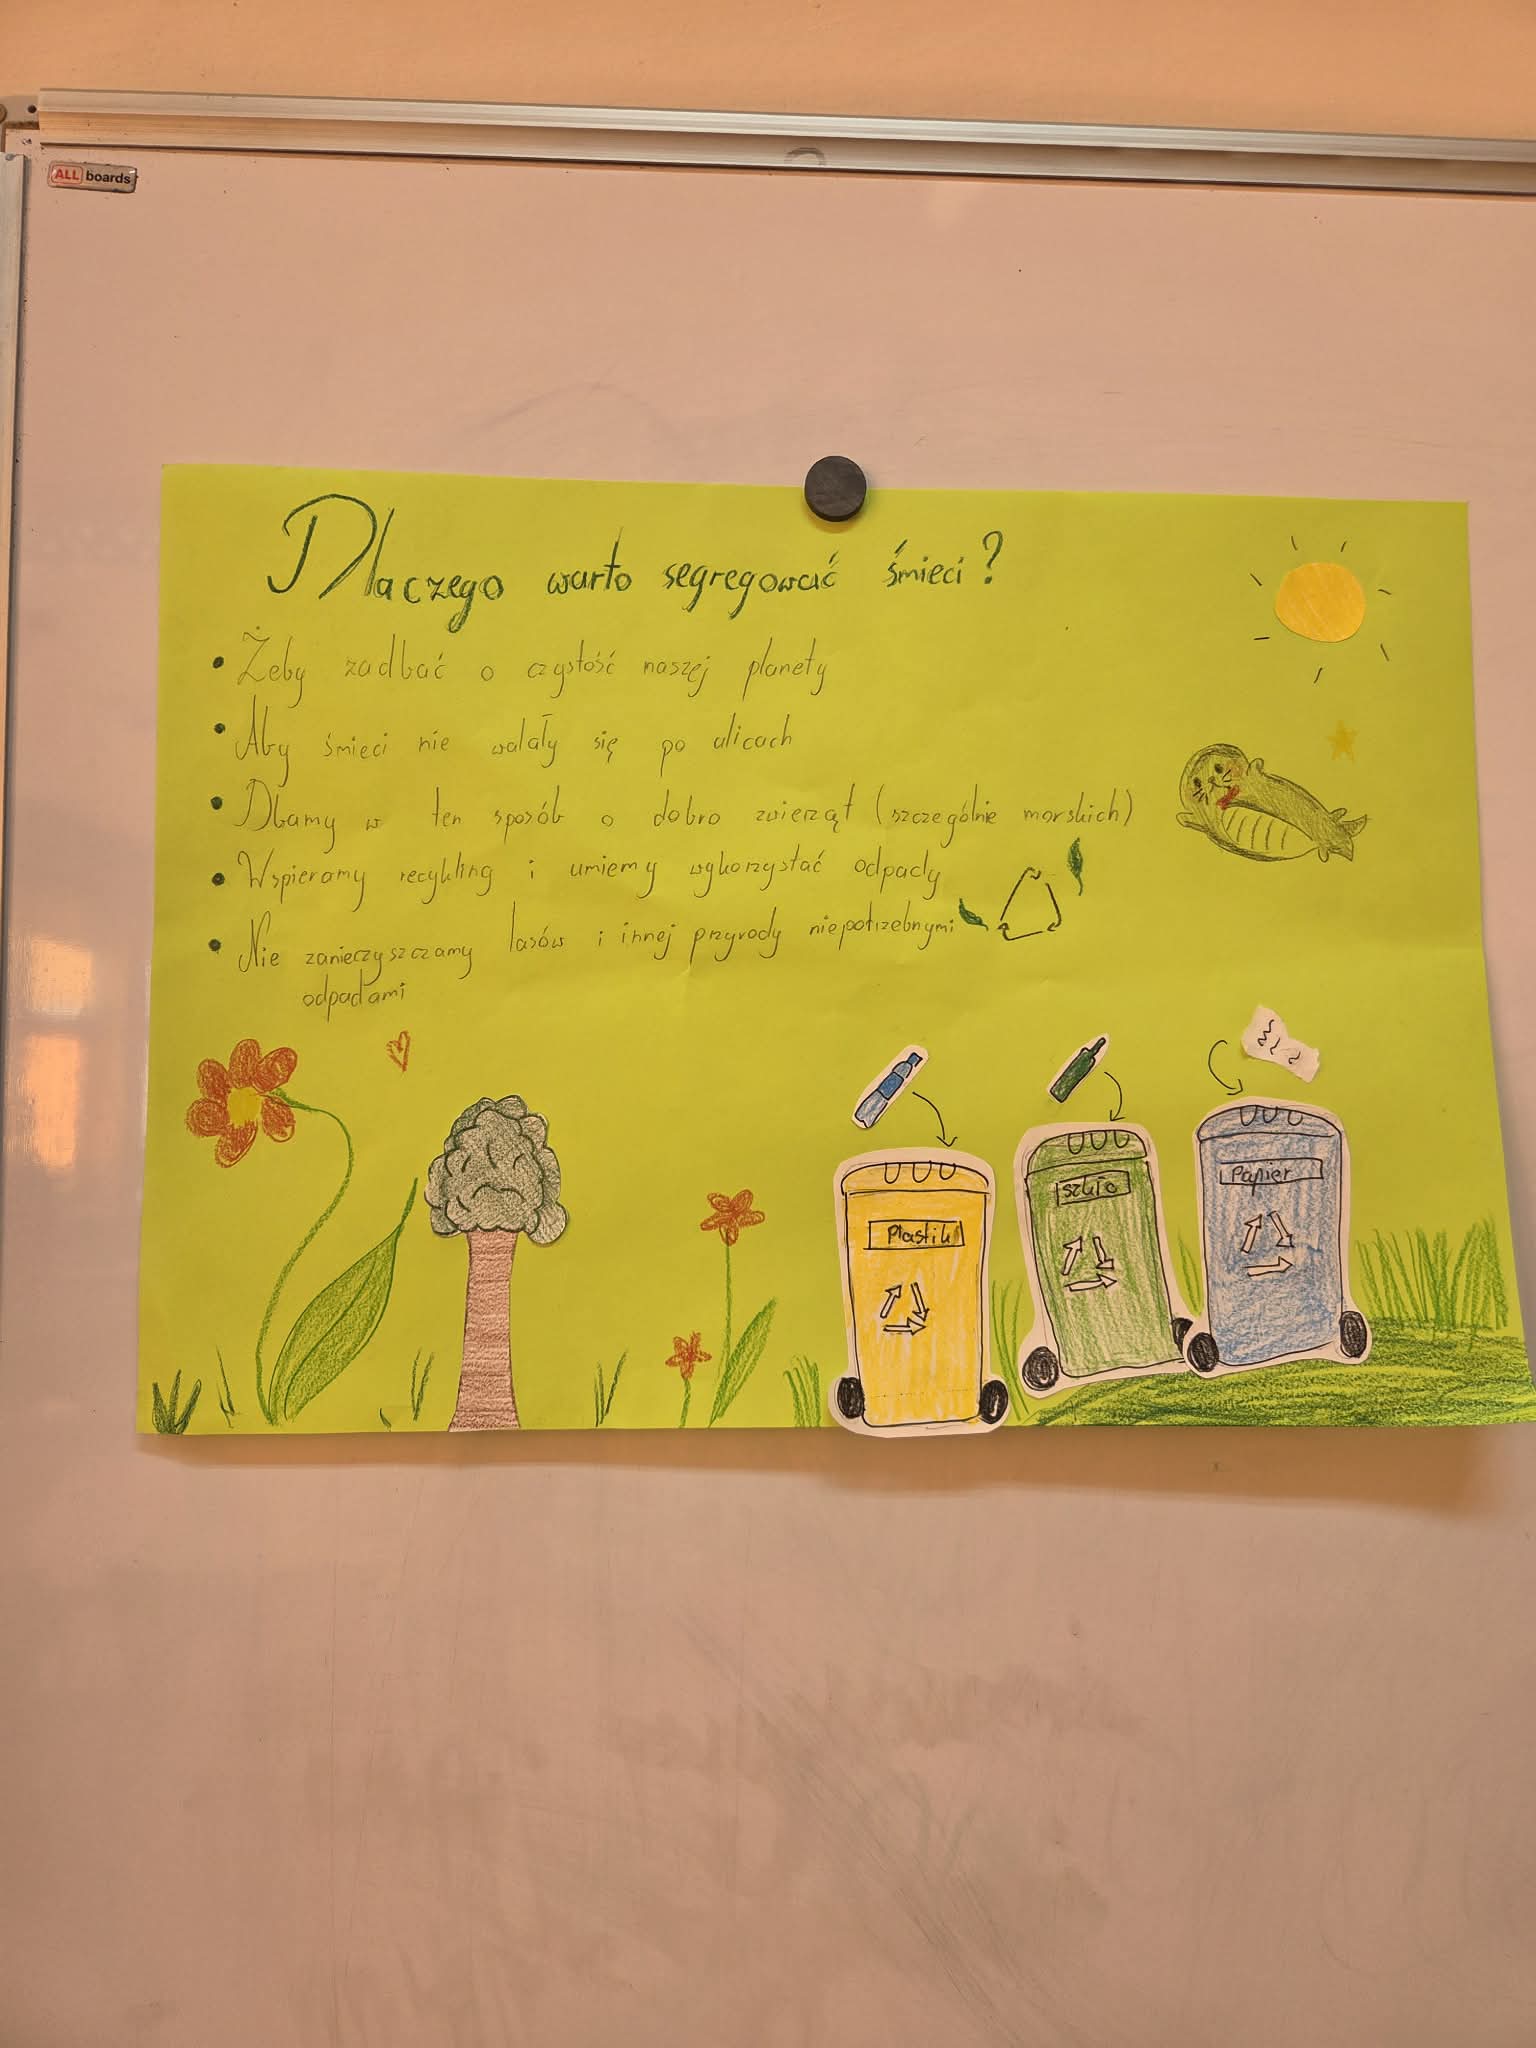 ALL boards
Dlaczego warto segregować śmieci?
• Żeby zadbać o czystość naszej planety
• Aby śmieci nie walały się po ulicach
• Dbamy w ten sposób o dobro zwierząt (szczególnie morskich)
• Wspieramy recykling i umiemy wykorzystać odpady
• Nie zanieczyszczamy lasów i innej przyrody niepotrzebnymi
odpadami
Plastik
szkło
Papier